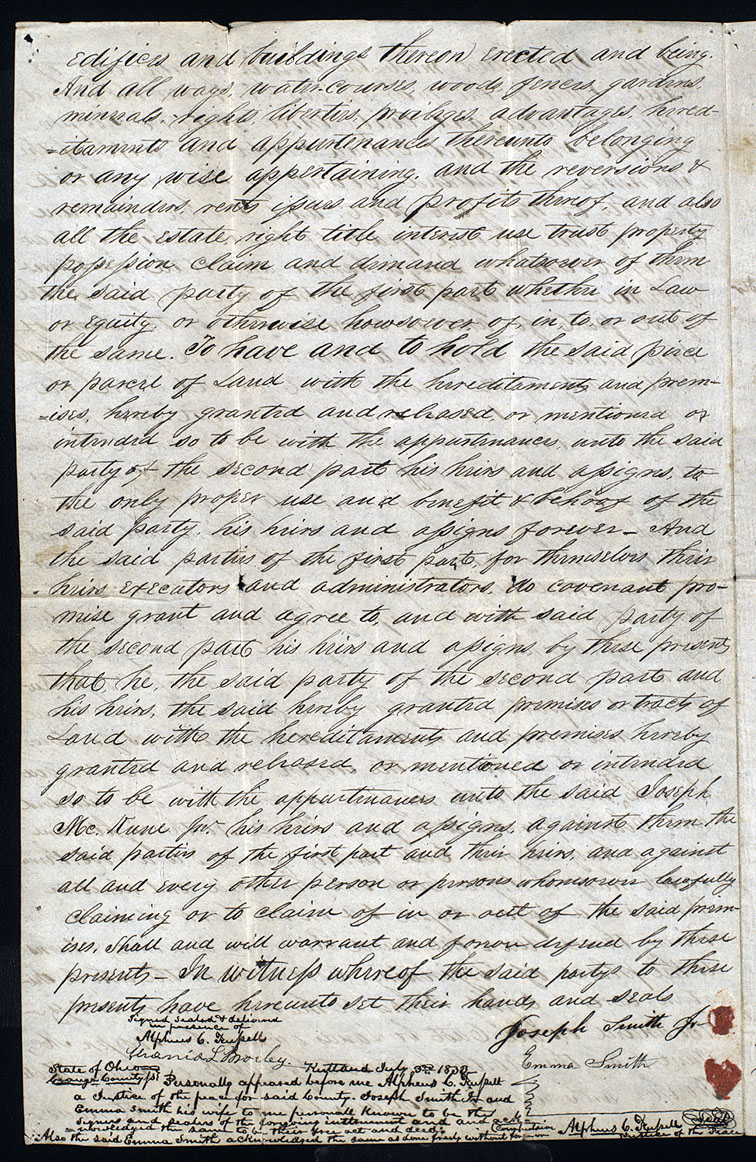 edifices and buildings thereon erected and being.
And all ways, water-courses, woods, fences, gardens,
minerals, rights, liberties, privileges, advantages, hered-
-itaments and appurtenances thereunto belonging
or any wise appertaining, and the reversions &
remainders, rents issues and profits thereof, and also
all the estate, right title interest use trust property
possession claim and demand whatsoever of them
the said party of the first part whether in Law
or Equity or otherwise howsoever, of in, to or out of
the same. To have and to hold the said piece
or parcel of Land with the hereditaments and prem-
-ises, hereby granted and released, or mentioned or
intended so to be with the appurtenances unto the said
party of the second part his heirs and assigns, to
the only proper use and benefit & behoof of the
said party, his heirs and assigns forever - And
the said parties of the first part, for themselves, their
heirs executors and administrators, do covenant pro-
mise grant and agree to, and with said party of
the second part his heirs and assigns by these presents
that he, the said party of the second part and
his heirs, the said hereby granted premises or tracts of
Land with the hereditaments and premises hereby
granted and released, or mentioned or intended
so to be with the appurtenances unto the said Joseph
Mc. Kune Jnr. his heirs and assigns, against them the
said parties of the first part and their heirs, and against
all and every other person or persons whomsoever lawfully
claiming or to claim of in or out of the said prem-
ises, Shall and will warrant and forever defend by these
presents - In witness whereof the said partys to these
presents have hereunto set their hands and seals
Signed sealed & delivered
in presence of
Alpheus C. Russell
Joseph Smith Jr
Emma Smith
Kirtland July 1833
State of Ohio
Geauga County Personally appeared before me Alpheus C. Russell
a Justice of the peace for said County. Joseph Smith Jr and
Emma Smith his wife to me personally known to be the
signers and sealers of the foregoing instrument and and ack-
-nowledged the same to be their free act and deed.
Alpheus C. Russell
Justice of the Peace
Also the said Emma Smith acknowledged the same as done freely without